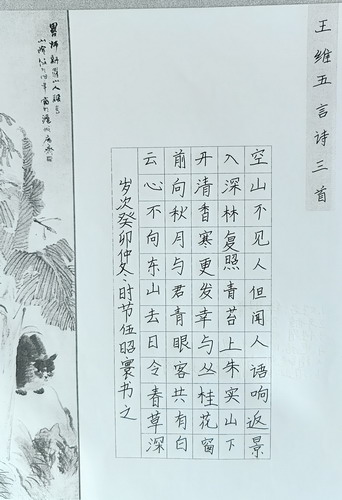 王维五言诗三首
空山不见人但闻人语响返景
入深林复照青苔上朱实山下
开清香寒更发幸与丛桂花窗
前向秋月与君青眼客共有白
云心不向东山去日令春草深
岁次癸卯仲冬时节伍昭寰书之